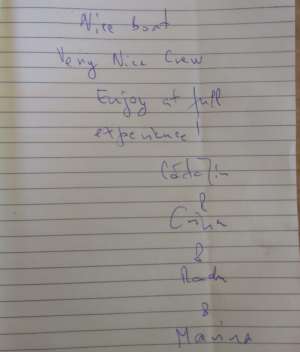 Nice boat
Very Nice Crew
Enjoy at full
experience!
Cătălin
&
Crina
&
Radu
&
Marina